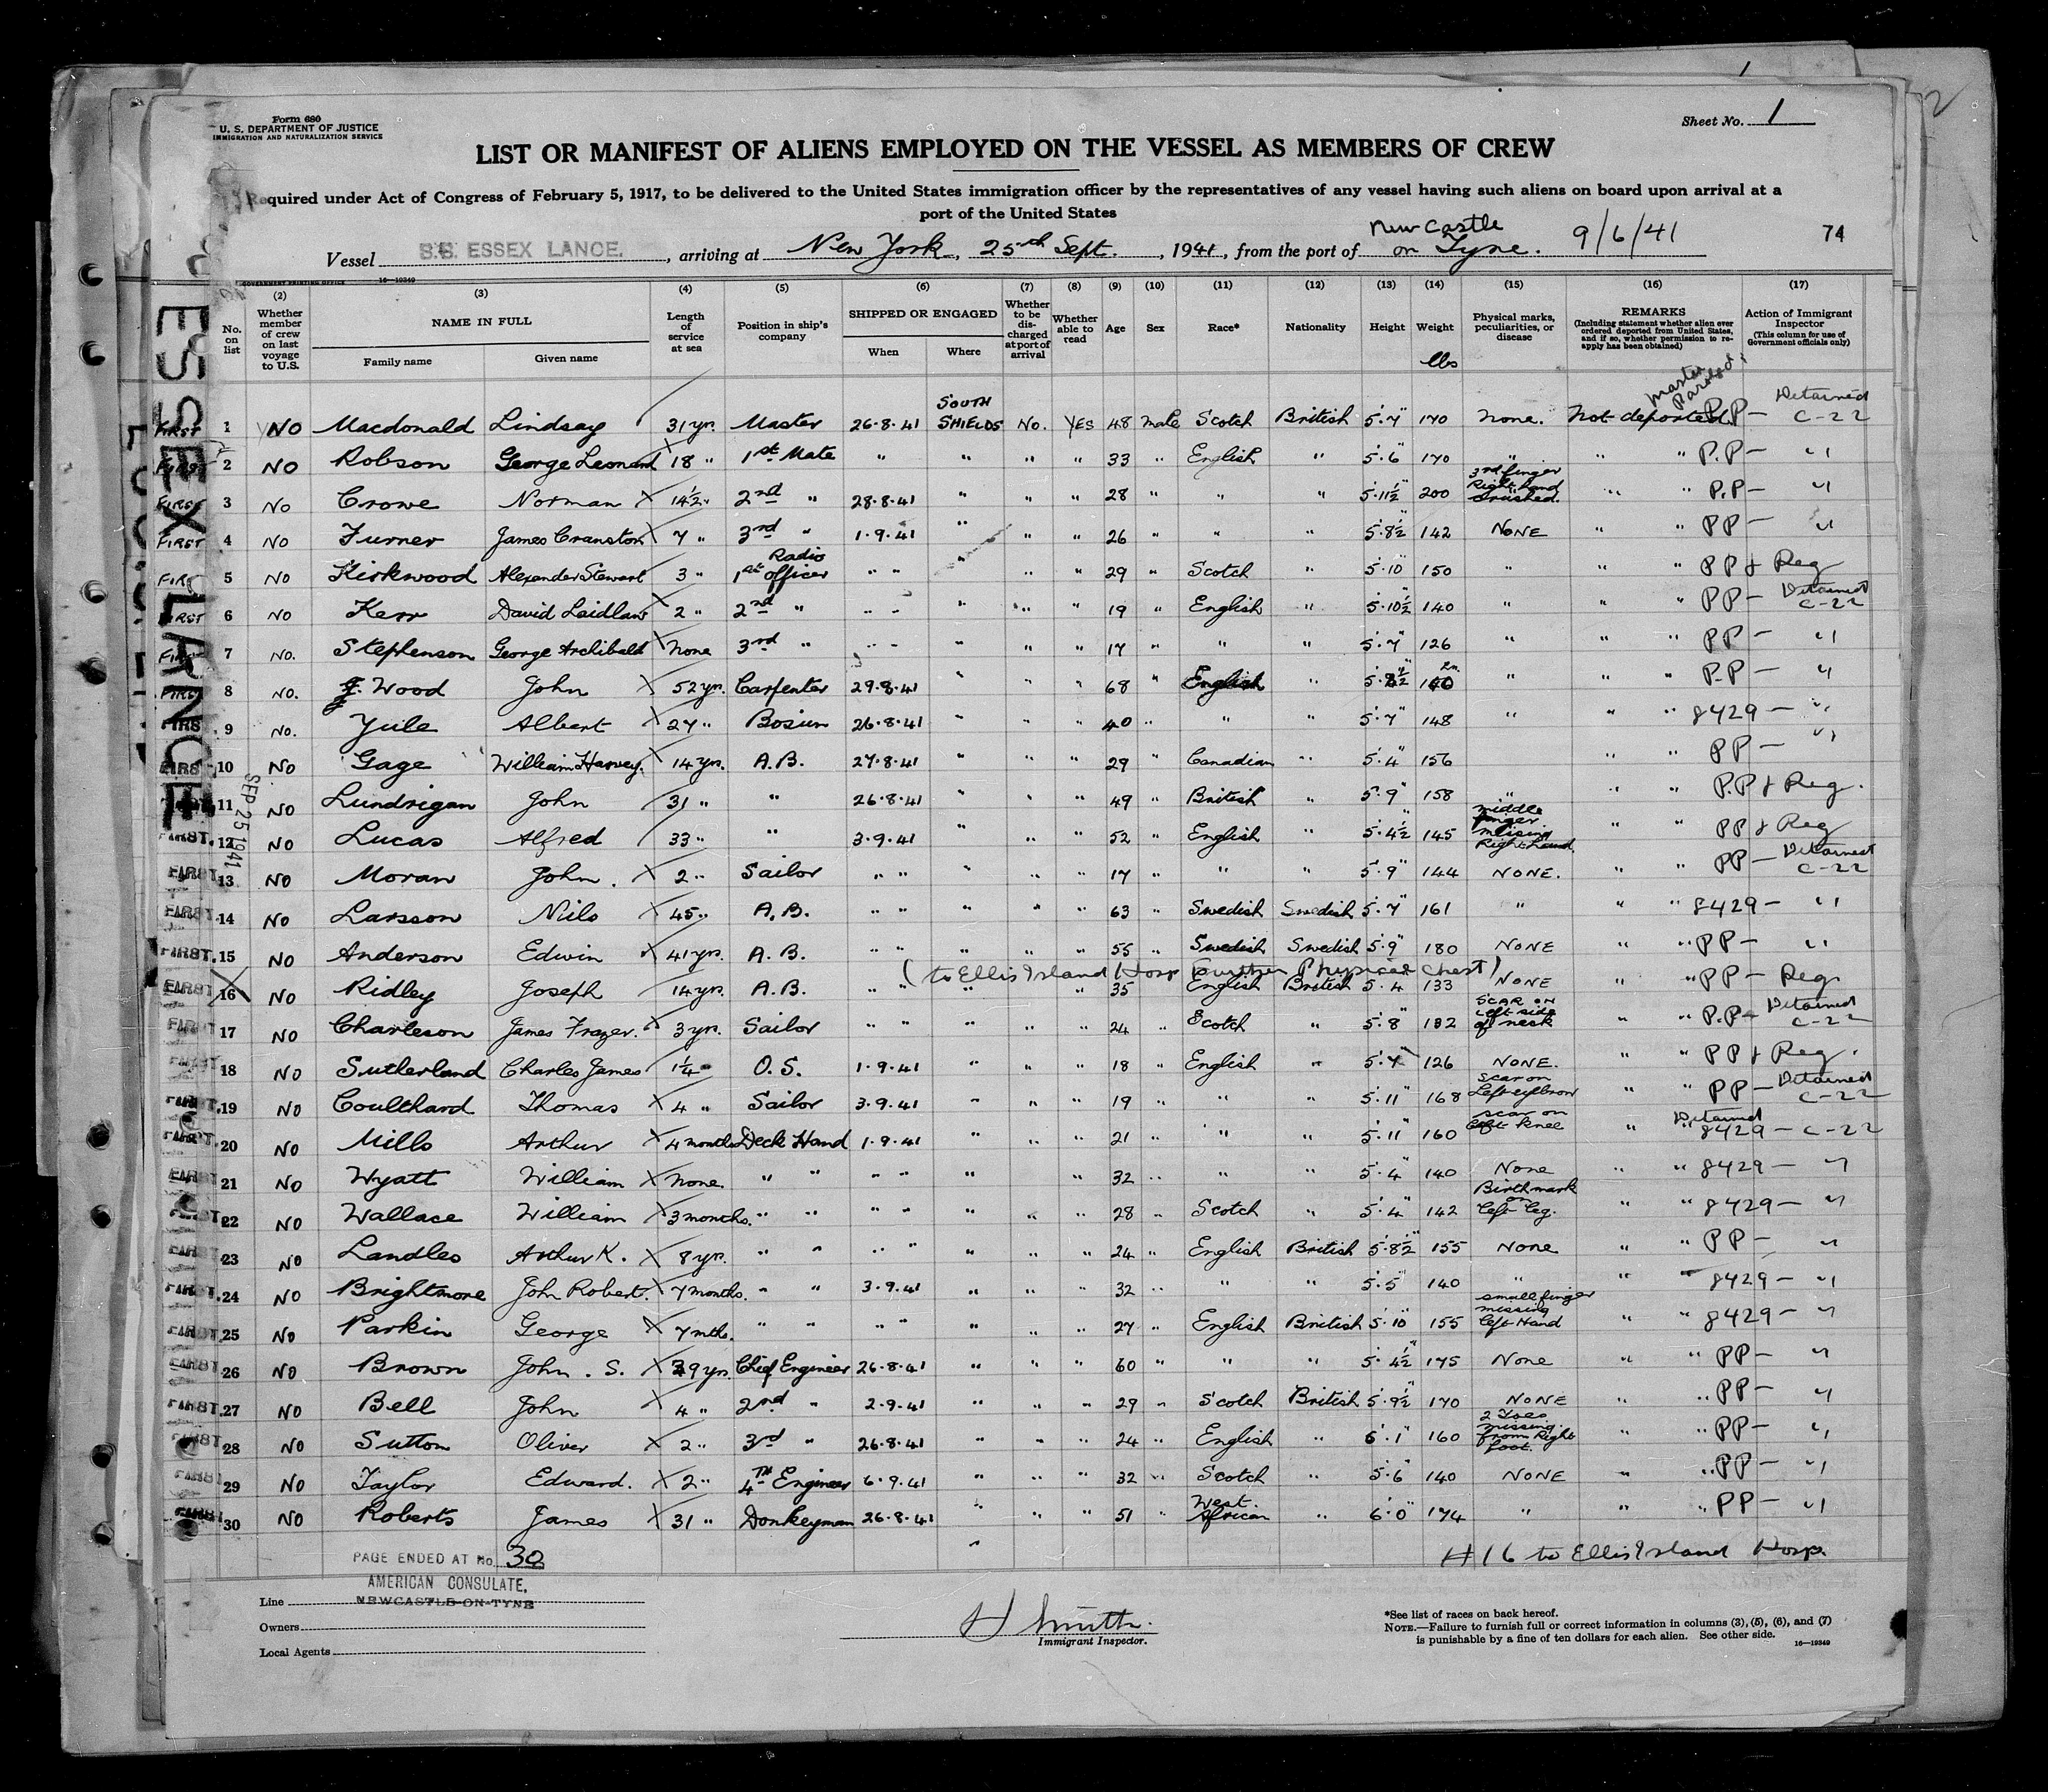 Form 680
U. S. DEPARTMENT OF JUSTICE
IMMIGRATION AND NATURALIZATION SERVICE
Sheet No. 1
2
LIST OR MANIFEST OF ALIENS EMPLOYED ON THE VESSEL AS MEMBERS OF CREW
Required under Act of Congress of February 5, 1917, to be delivered to the United States immigration officer by the representatives of any vessel having such aliens on board upon arrival at a
port of the United States
Vessel S.S. ESSEX LANCE., arriving at New York, 25th Sept., 1941, from the port of Newcastle on Tyne. 9/6/41 74
GOVERNMENT PRINTING OFFICE 16—19349
ESSEX LANCE
SEP 25 1941
No. on list
(2) Whether member of crew on last voyage to U.S.
(3) NAME IN FULL Family name Given name
(4) Length of service at sea
(5) Position in ship's company
(6) SHIPPED OR ENGAGED When Where
(7) Whether to be discharged at port of arrival
(8) Whether able to read
(9) Age
(10) Sex
(11) Race*
(12) Nationality
(13) Height
(14) Weight lbs
(15) Physical marks, peculiarities, or disease
(16) REMARKS (Including statement whether alien ever ordered deported from United States, and if so, whether permission to re-apply has been obtained)
(17) Action of Immigrant Inspector (This column for use of Government officials only)
Master Paroled
FIRST 1 NO Macdonald Lindsay 31 yr. Master 26·8·41 SOUTH SHIELDS No. YES 48 Male Scotch British 5·7" 170 None. Not deported. P.P — Detained C-22
FIRST 2 NO Robson George Leonard 18 " 1st Mate " " " " 33 " English " 5·6 170 " " " P.P — "
FIRST 3 No Crowe Norman X 14½ " 2nd " 28·8·41 " " " 28 " " " 5·11½ 200 3rd finger Right hand crushed. " " P.P — "
FIRST 4 NO Turner James Cranston X 7 " 3rd " 1·9·41 " " " 26 " " " 5·8½ 142 NONE " " PP — "
FIRST 5 NO Kirkwood Alexander Stewart 3 " 1st Radio officer " " " " " 29 " Scotch " 5·10 150 " " " PP & Reg
FIRST 6 NO Kerr David Laidlaw X 2 " 2nd " " " " " " 19 " English " 5·10½ 140 " " " PP — Detained C-22
FIRST 7 NO. Stephenson George Archibald X None 3rd " " " " " " 17 " " " 5·7" 126 " " " PP — "
FIRST 8 NO. Wood John X 52 yr. Carpenter 29·8·41 " " " 68 " English " " " " P.P — "
FIRST 9 NO. Yule Albert X 27 " Bosun 26·8·41 " " " 40 " " " 5·7" 148 " " " 8429 — "
FIRST 10 NO Gage William Harvey. X 14 yr. A.B. 27·8·41 " " " 29 " Canadian " 5·4" 156 " " PP — "
11 NO Lundrigan John 31 " " 26·8·41 " " " 49 " British " 5·9" 158 " " " P.P & Reg.
FIRST. 12 NO Lucas Alfred 33 " " 3·9·41 " " " 52 " English " 5·4½ 145 middle finger missing Right hand. " " PP & Reg
FIRST. 13 NO Moran John. X 2 " Sailor " " " " " 17 " " " 5·9" 144 NONE. " " PP — Detained C-22
FIRST. 14 NO Larsson Nils X 45 " A.B. " " " " " 63 " Swedish Swedish 5·7" 161 " " " 8429 — "
FIRST. 15 NO Anderson Edwin X 41 yr. A.B. " " " " " 55 " Swedish Swedish 5·9" 180 NONE " " PP — "
(to Ellis Island Hosp Further Physical Chest)
FIRST 16 NO Ridley Joseph 14 yr. A.B. " " " " 35 English British 5·4 133 NONE " " PP — Reg.
FIRST 17 NO Charleson James Frazer. X 3 yr. Sailor " " " " " 24 " Scotch " 5·8" 132 SCAR ON left side of neck " " P.P — Detained C-22
FIRST 18 NO Sutherland Charles James 1¼ O.S. 1·9·41 " " " 18 " English " 5·7" 126 NONE. " " PP & Reg.
FIRST. 19 NO Coulthard Thomas X 4 " Sailor 3·9·41 " " " 19 " " " 5·11" 168 scar on Left eyebrow " " PP — Detained C-22
FIRST. 20 NO Mills Arthur X 4 months Deck Hand 1·9·41 " " " 21 " " " 5·11" 160 scar on left knee " Detained 8429 — C-22
FIRST 21 NO Wyatt William X None. " " " " " " 32 " " " 5·4" 140 None " " 8429 — "
FIRST. 22 NO Wallace William X 3 months. " " " " " " " 28 " Scotch " 5·4" 142 Birthmark on left leg. " " 8429 — "
FIRST. 23 NO Landles Arthur K. X 8 yr. " " " " " " " 24 " English British 5·8½" 155 None " " PP — "
FIRST. 24 NO Brightmore John Robert. X 7 months. " " 3·9·41 " " " 32 " " " 5·5" 140 " " " 8429 — "
FIRST. 25 NO Parkin George X 7 mths. " " " " " " " 27 " English British 5·10" 155 small finger missing left Hand " " 8429 — "
FIRST 26 NO Brown John. S. X 39 yr. Chief Engineer 26·8·41 " " " 60 " " " 5·4½" 175 None " " PP — "
FIRST. 27 NO Bell John 4 " 2nd " 2·9·41 " " " 29 " Scotch British 5·9½" 170 NONE " " PP — "
FIRST 28 NO Sutton Oliver X 2 " 3rd " 26·8·41 " " " 24 " English " 6·1" 160 2 Toes missing from Right foot. " " PP — "
FIRST 29 NO Taylor Edward. X 2 " 4TH Engineer 6·9·41 " " " 32 " Scotch " 5·6" 140 NONE " " PP — "
FIRST 30 NO Roberts James X 31 " Donkeyman 26·8·41 " " " 51 " West African " 6·0" 174 " " " PP — "
PAGE ENDED AT No. 30
#16 to Ellis Island Hosp.
AMERICAN CONSULATE,
NEWCASTLE-ON-TYNE
Line
Owners
Local Agents
H Smith.
Immigrant Inspector.
*See list of races on back hereof.
NOTE.—Failure to furnish full or correct information in columns (3), (5), (6), and (7)
is punishable by a fine of ten dollars for each alien. See other side. 16—19349